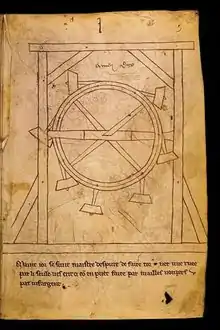 Maint ior se sunt maistre despute de faire torner une ruee
par li seule ves ent ci con en puet faire par mailles nonpers u
par vif argent